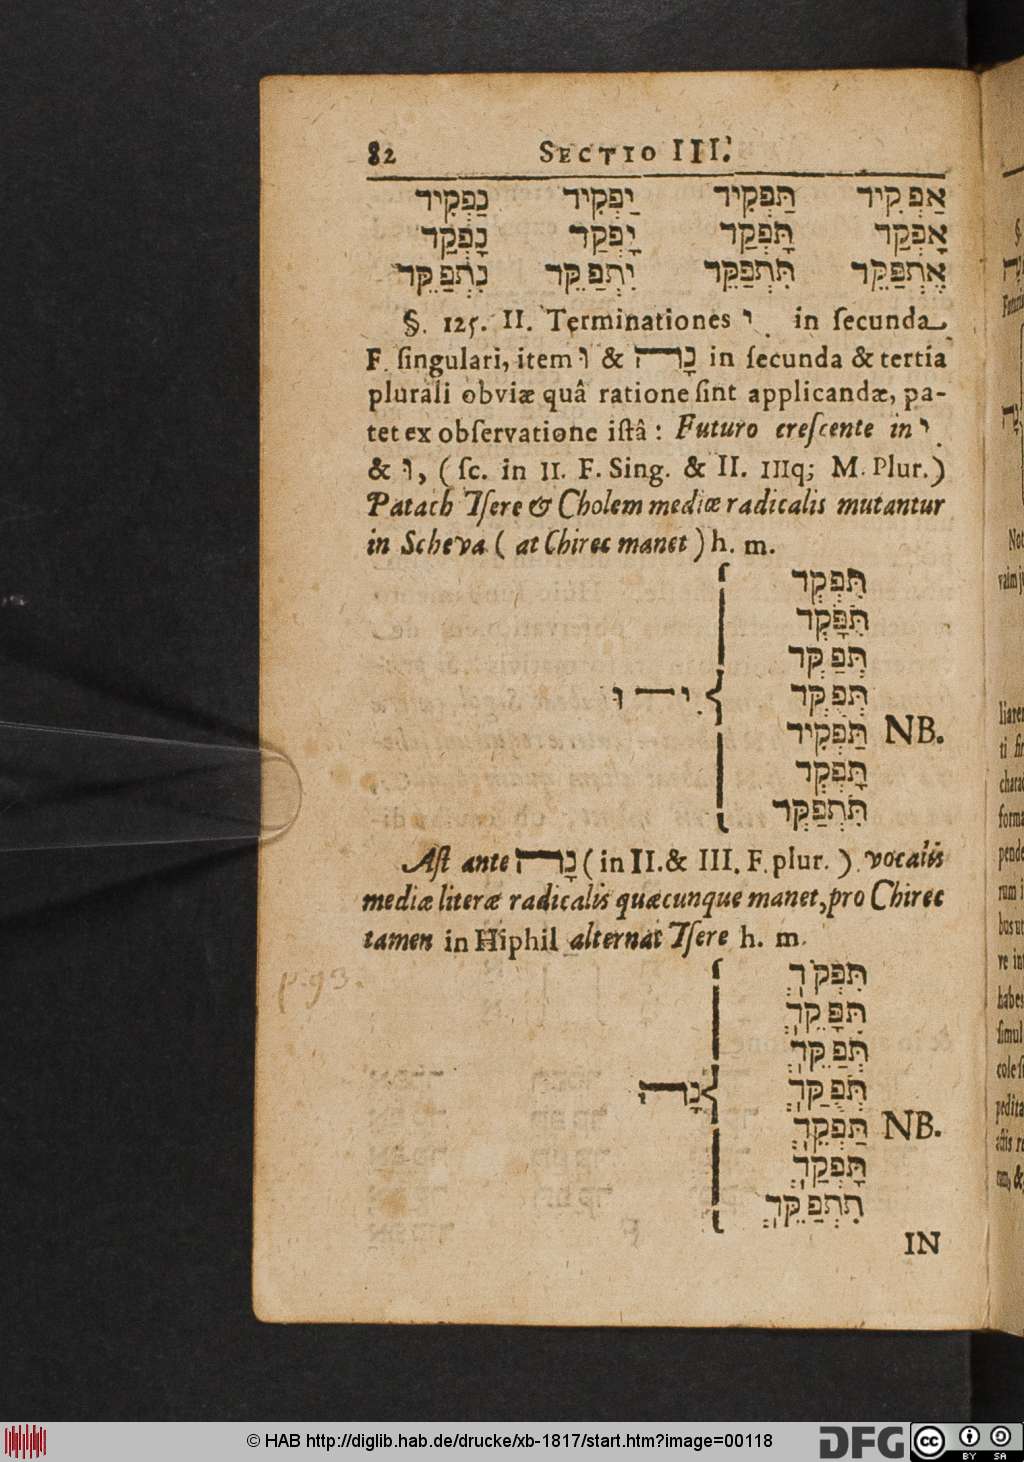 82 SECTIO III.
אַפְקִיד תַּפְקִיד יַפְקִיד נַפְקִיד
אָפְקַד תָּפְקַד יָפְקַד נָפְקַד
אֶתְפַּקֵּד תִּתְפַּקֵּד יִתְפַּקֵּד נִתְפַּקֵּד
§. 125. II. Terminationes ־ִי in ſecunda
F. ſingulari, item וּ & נָה— in ſecunda & tertia
plurali obviæ quâ ratione ſint applicandæ, pa-
tet ex obſervatione iſtâ: Futuro creſcente in ־ִי
& וּ, (ſc. in II. F. Sing. & II. IIIq; M. Plur.)
Patach Tſere & Cholem mediæ radicalis mutantur
in Scheva (at Chirec manet) h. m.
תִּפְקְד
תִּפָּקְד
תְּפַקְּד
תְּפֻקְּד
־ִי — וּ
תַּפְקִיד NB.
תָּפְקְד
תִּתְפַּקְּד
Aſt ante נָה— (in II. & III. F. plur.) vocalis
mediæ literæ radicalis quæcunque manet, pro Chirec
tamen in Hiphil alternat Tſere h. m.
p. 93.
תִּפְקֹדְ
תִּפָּקֵדְ
תְּפַקֵּדְ
תְּפֻקַּדְ
נָה—
תַּפְקֵדְ NB.
תָּפְקַדְ
תִתְפַּקֵּדְ
IN
© HAB http://diglib.hab.de/drucke/xb-1817/start.htm?image=00118
DFG
cc BY SA